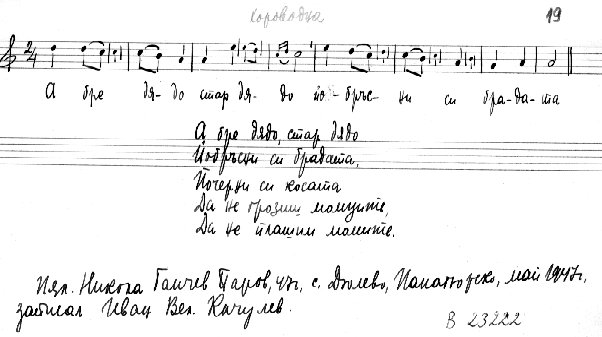 Хороводна
19
2/4
А бре дя-до стар дя-до по-бръс-ни си бра-да-та
А бре дядо, стар дядо
Побръсни си брадата,
Почерни си косата
Да не грозиш момците,
Да не плашиш момите.
Изп. Никола Ганчев Паров, 47г, с. Дюлево, Панагюрско, май 1947г,
записал Иван Вел. Качулев.
В 23222